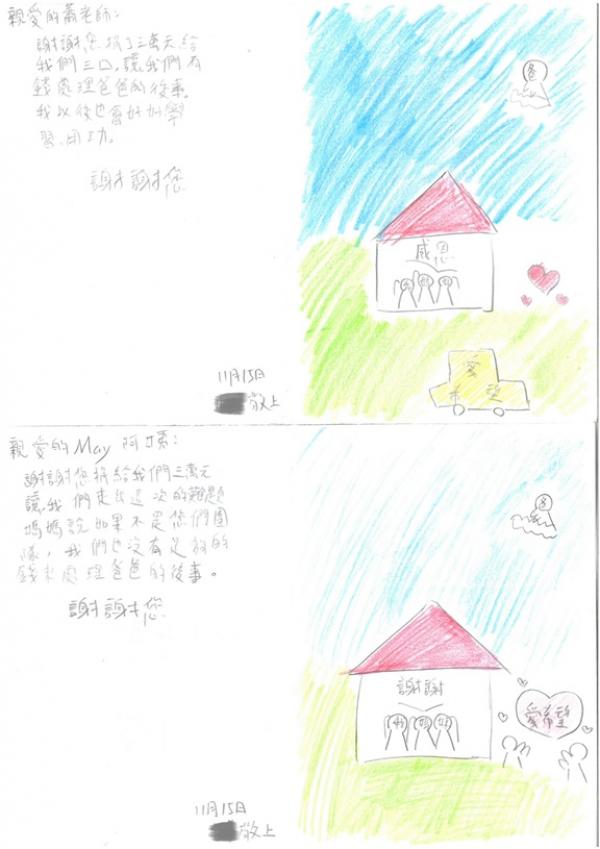 親愛的蕭老師:
謝謝您捐了三萬元給
我們三口,讓我們有
錢處理爸爸的後事。
我以後也會好好學
習、用功。
謝謝您
11月15日
敬上
爸
感恩
愛
希望
親愛的May阿姨:
謝謝您捐給我們三萬元
讓我們走出這次的難題
媽媽說如果不是您們團
隊,我們也沒有足夠的
錢來處理爸爸的後事。
謝謝您
11月15日
敬上
爸
謝謝
愛希望